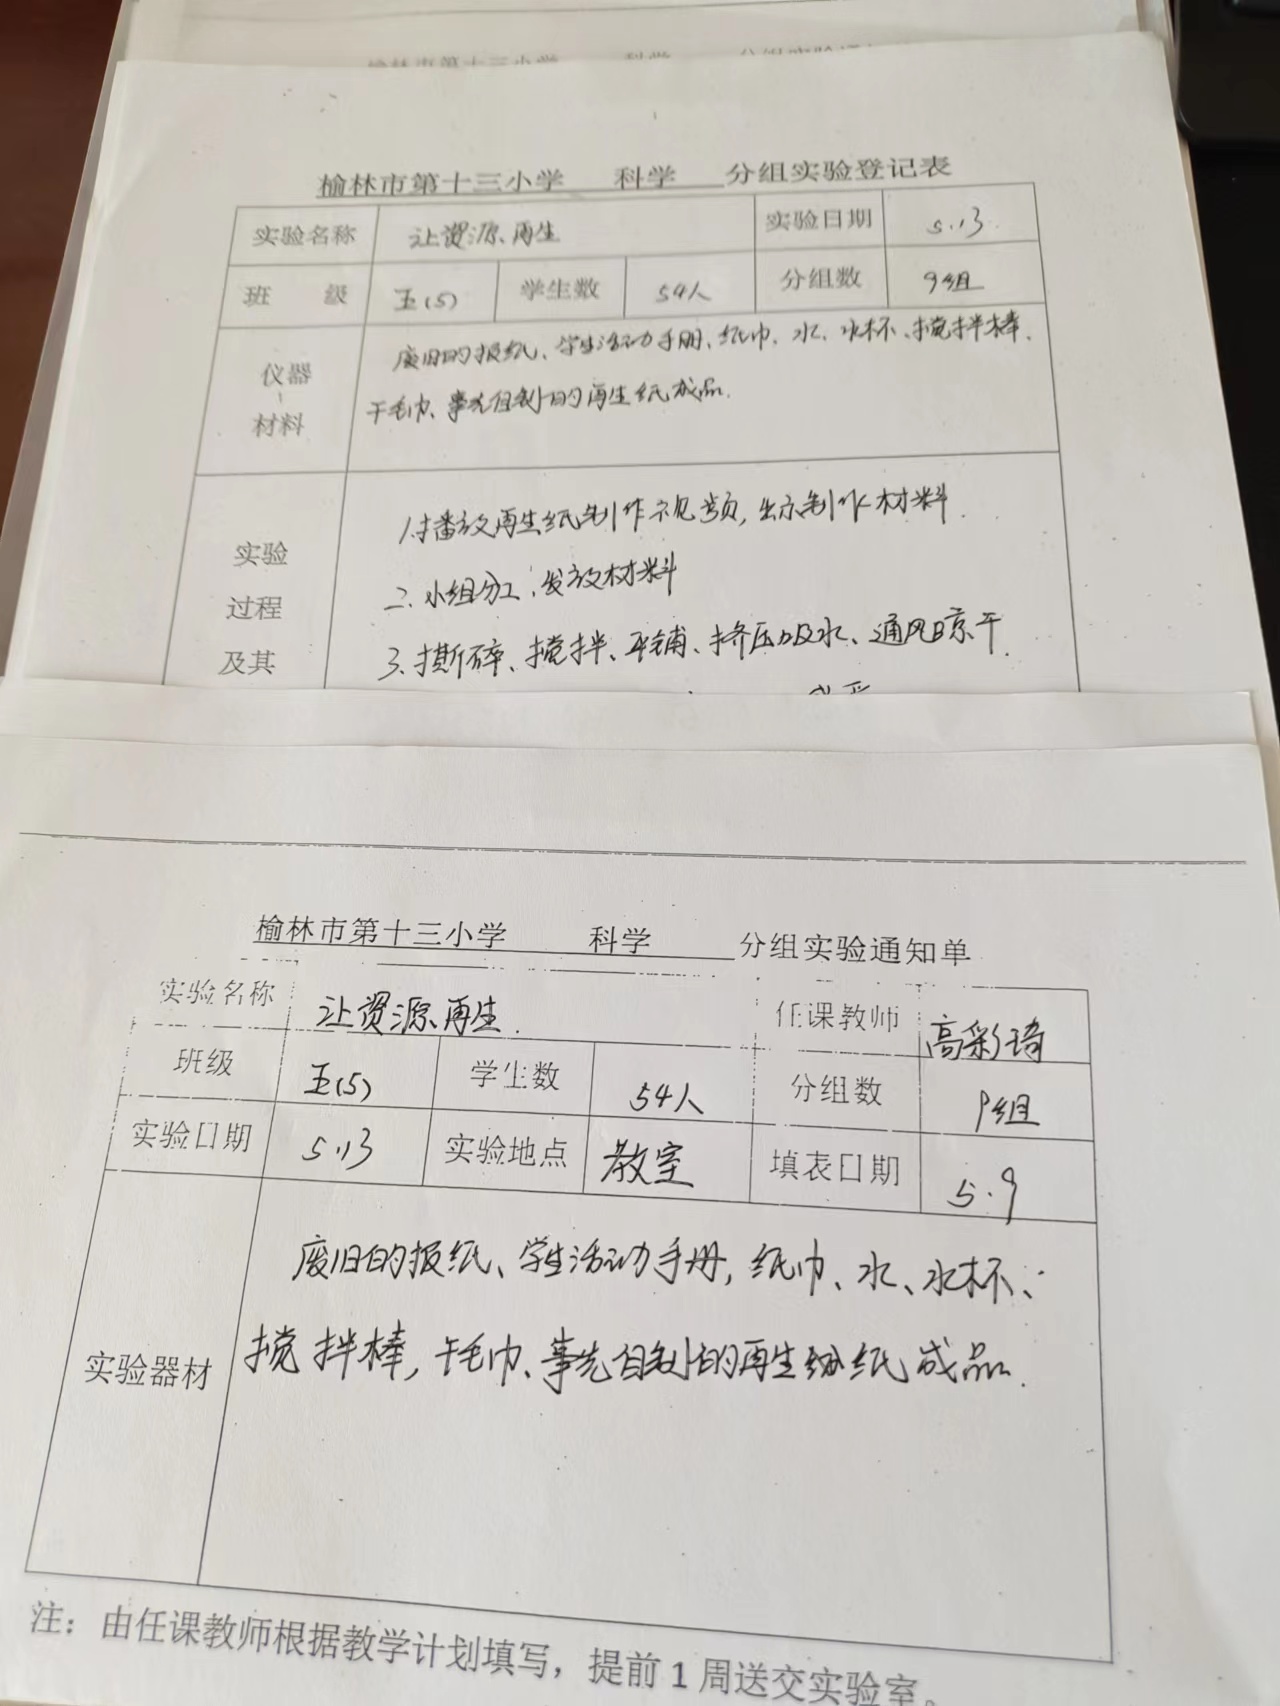 榆林市第十三小学 科学 分组实验登记表
实验名称 让资源再生 实验日期 5.13
班 级 五(5) 学生数 54人 分组数 9组
仪器、材料 废旧的报纸、学生活动手册、纸巾、水、水杯、搅拌棒、
干毛巾、事先自制的再生纸成品.
实验过程及其
1.播放再生纸制作视频,出示制作材料.
2.小组分工,发放材料
3.撕碎、搅拌、平铺、挤压吸水、通风晾干.
榆林市第十三小学 科学 分组实验通知单
实验名称 让资源再生. 任课教师 高彩琦
班级 五(5) 学生数 54人 分组数 9组
实验日期 5.13 实验地点 教室 填表日期 5.9
实验器材 废旧的报纸、学生活动手册,纸巾、水、水杯、
搅拌棒,干毛巾、事先自制的再生纸成品.
注：由任课教师根据教学计划填写，提前1周送交实验室。